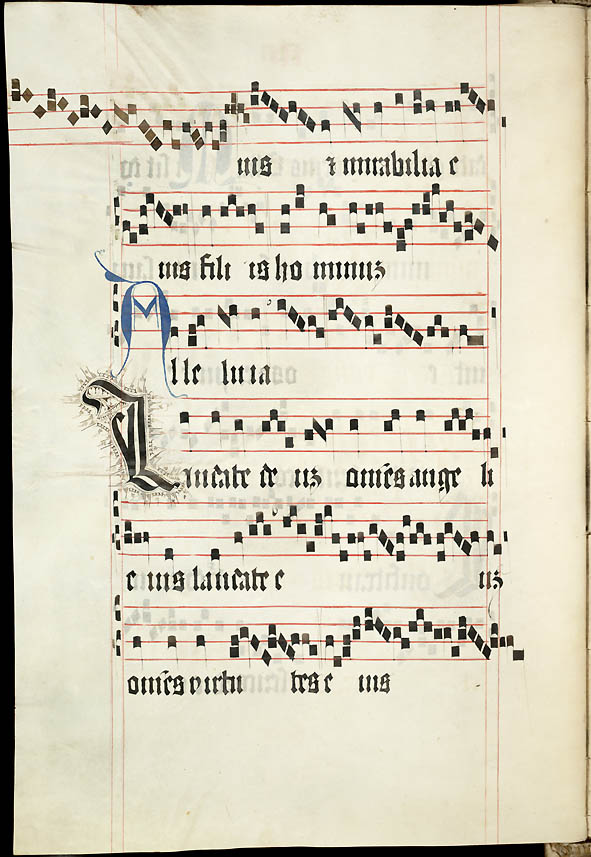 ius ⁊ mirabilia e
ius fili is ho minuʒ
Alle luia
Laudate de uʒ om̄es ange li
e ius laudate e uʒ
om̄es virtu tes e ius